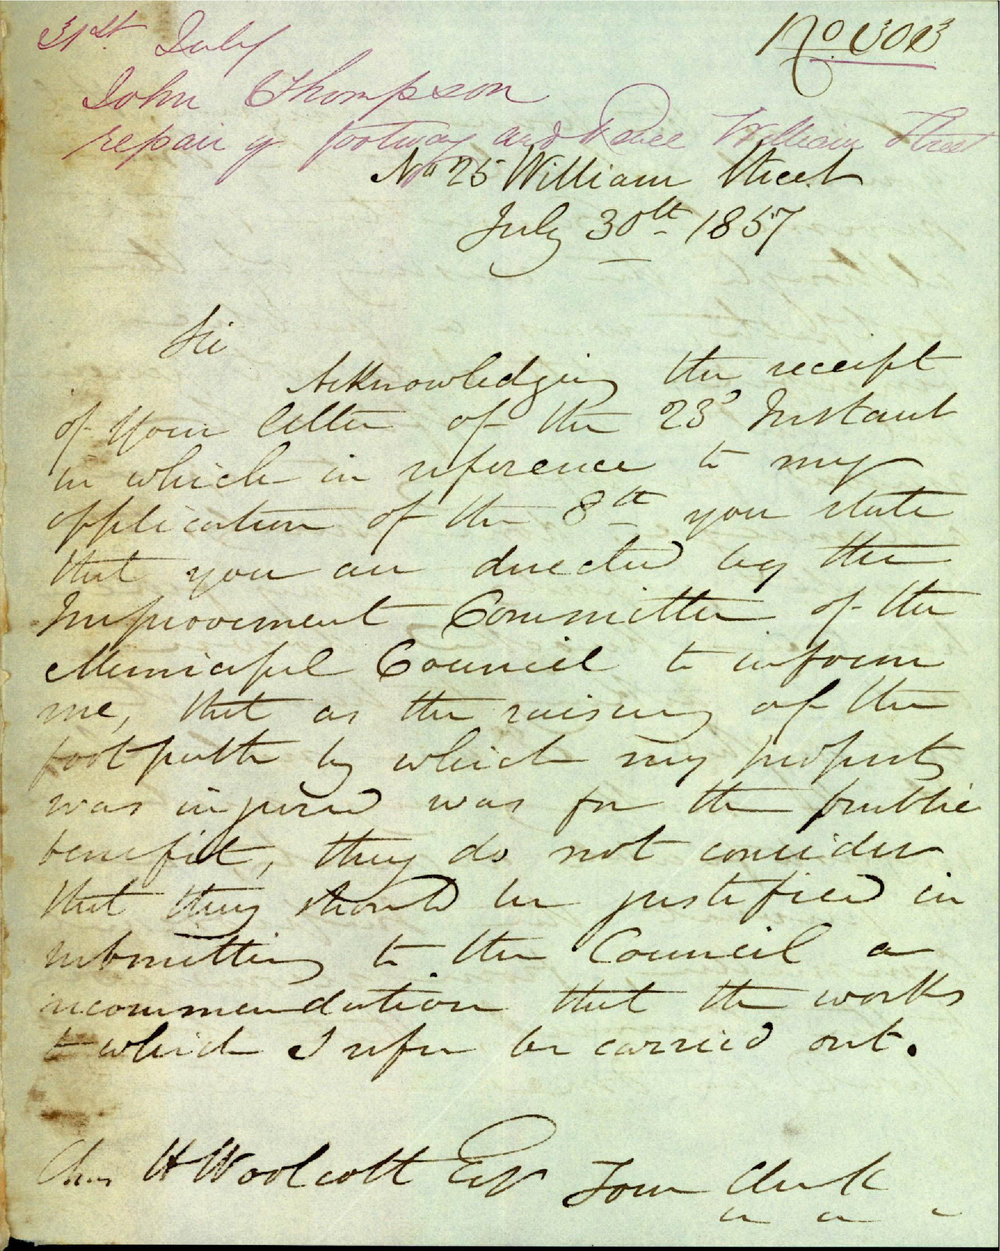 31st July
No 303
John Thompson
repair of footway and William Street
No 25 William Street
July 30th 1857
Sir
Acknowledging the receipt
of your letter of the 23d Instant
in which in reference to my
application of the 8th you state
that you are directed by the
Improvement Committee of the
Municipal Council to inform
me, that as the raising of the
footpath by which my property
was injured was for the public
benefit, they do not consider
that they should be justified in
submitting to the Council a
recommendation that the works
to which I refer be carried out.
Chas H Woolcott Esqr Town Clerk